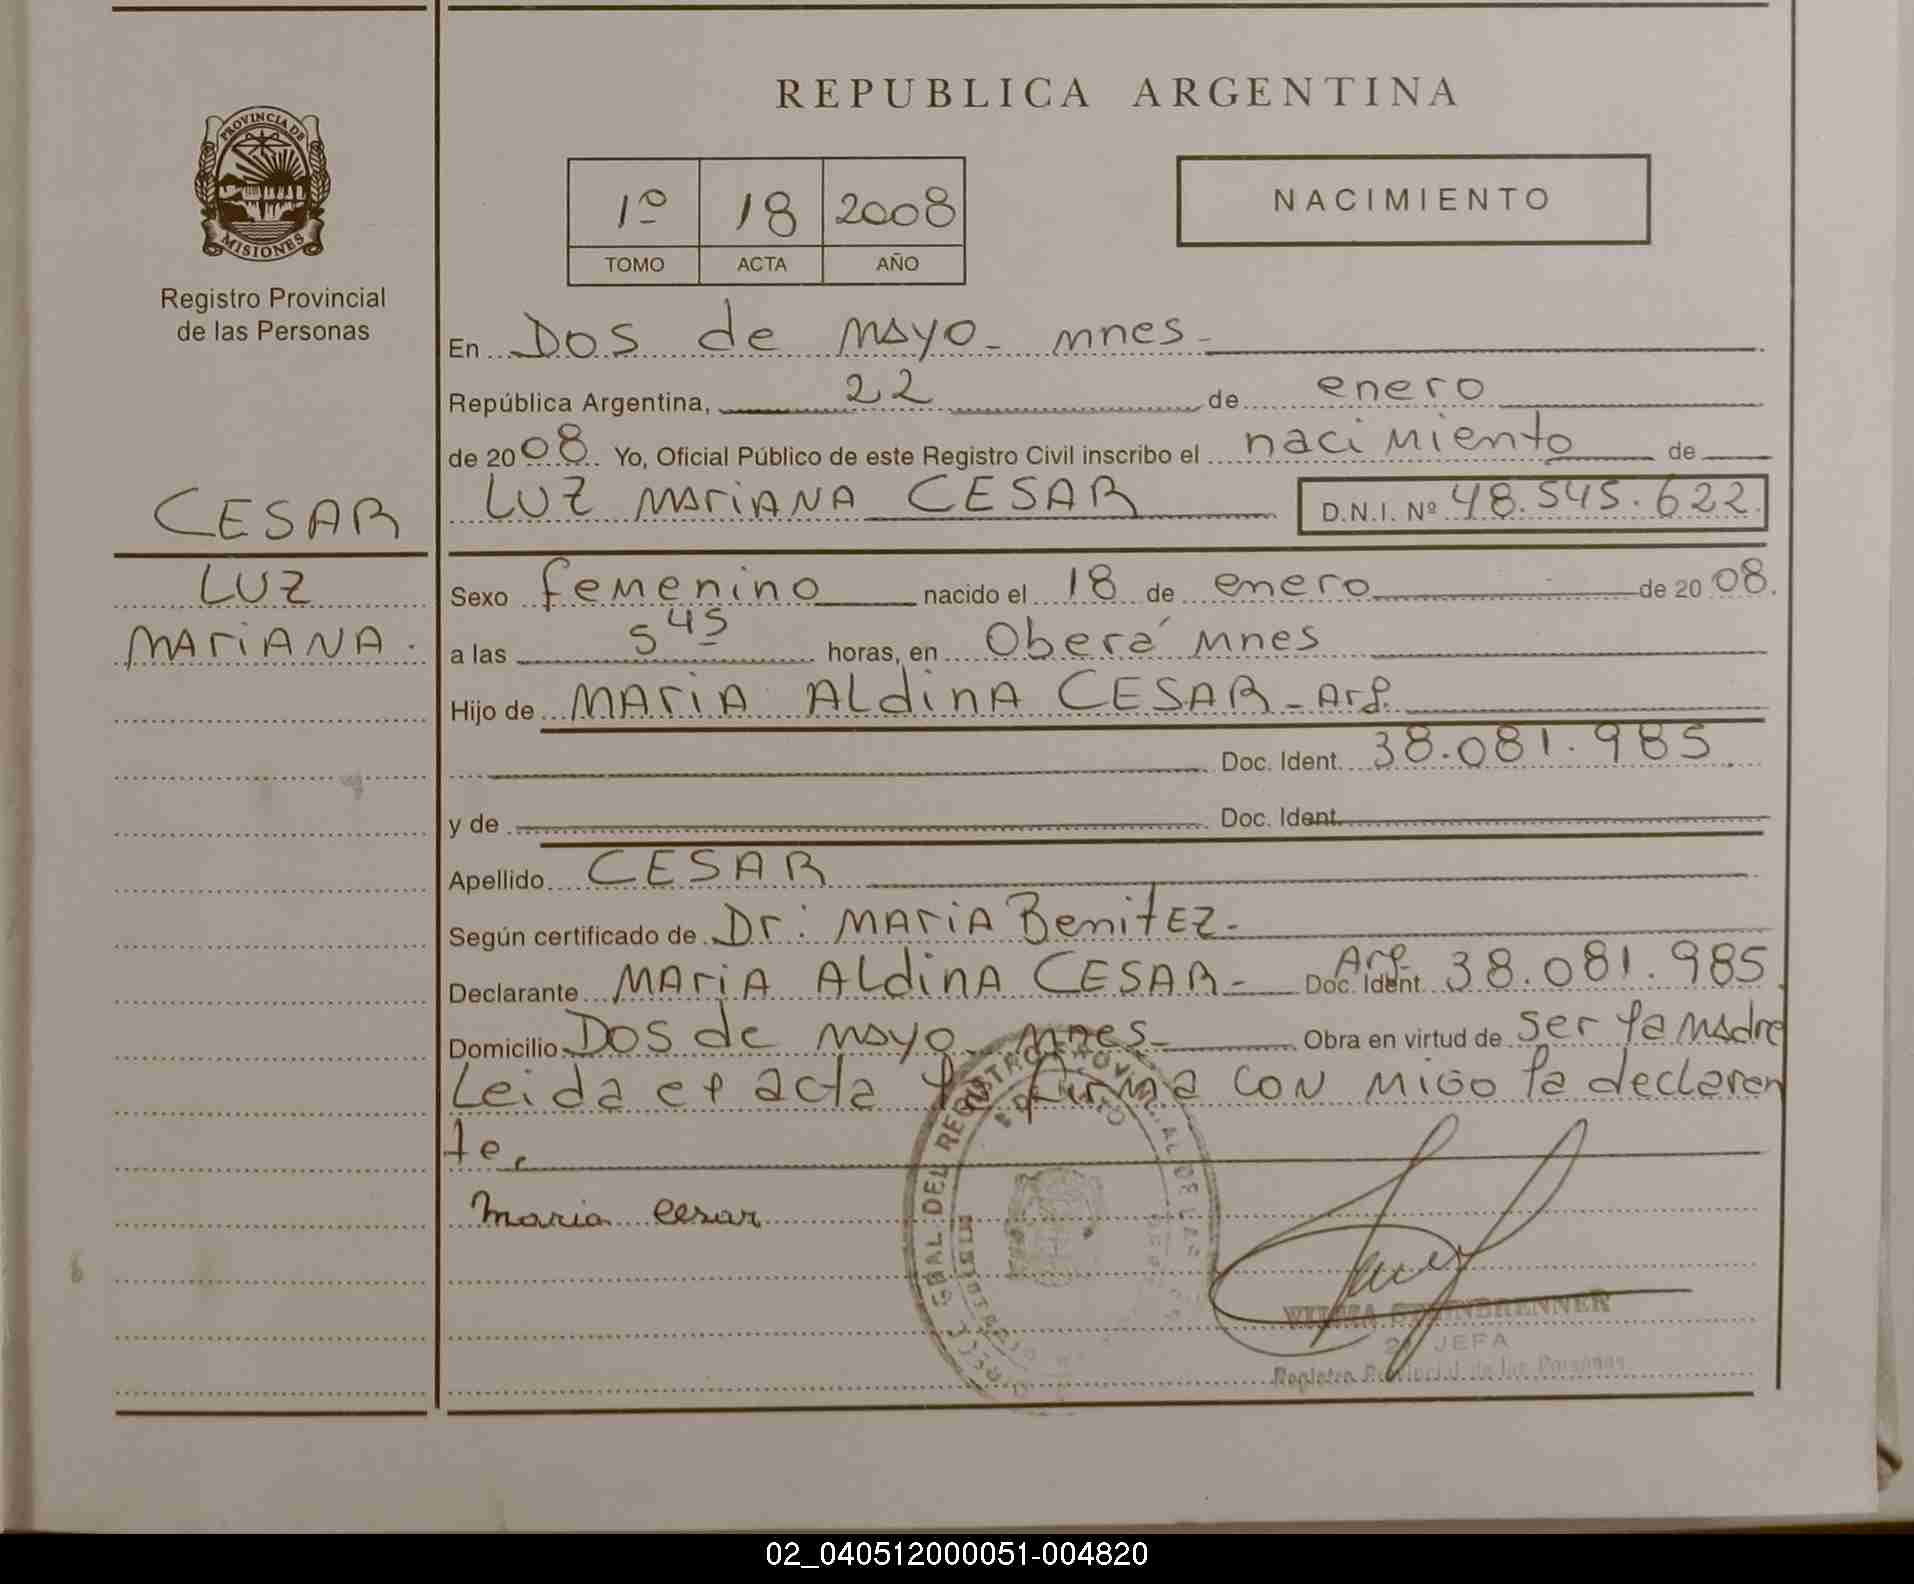 REPUBLICA ARGENTINA
PROVINCIA DE
MISIONES
Registro Provincial
de las Personas
1º 18 2008
TOMO ACTA AÑO
NACIMIENTO
En Dos de mayo - mnes -
República Argentina, 22 de enero
de 2008 Yo, Oficial Público de este Registro Civil inscribo el nacimiento de
LUZ MARIANA CESAR D.N.I. Nº 48.545.622
CESAR
LUZ
MARIANA.
Sexo femenino nacido el 18 de enero de 2008.
a las 5 45 horas, en Oberá mnes
Hijo de MARIA ALdinA CESAR - Arg.
Doc. Ident. 38.081.985
y de Doc. Ident.
Apellido CESAR
Según certificado de Dr: MARIA BenitEZ -
Declarante MARIA ALdinA CESAR - Arg. Doc. Ident. 38.081.985
Domicilio Dos de mayo mnes - Obra en virtud de ser la madre
Leida el acta firma con migo la declaran
te,
Maria Cesar
GRAL DEL REGISTRO PROVINCIAL DE LAS
STEINBRENNER
JEFA
Registro Provincial de las Personas
02_040512000051-004820